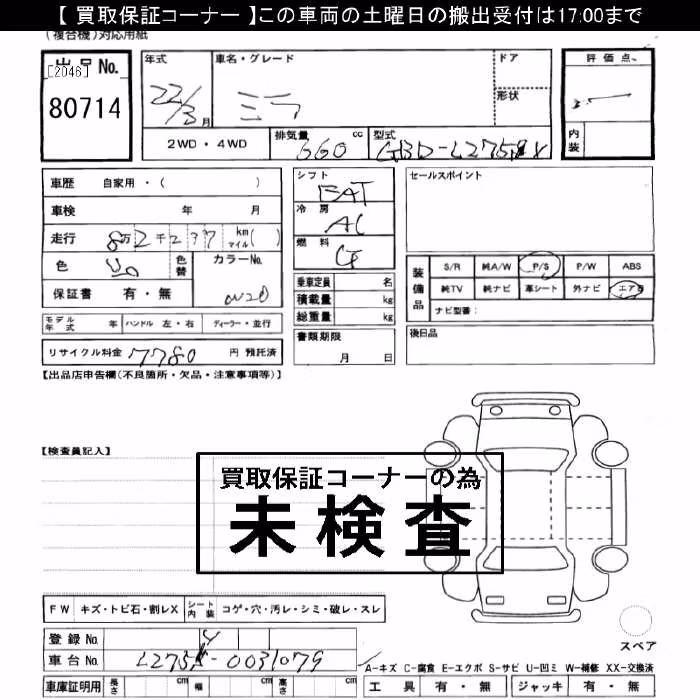 【 買取保証コーナー 】この車両の土曜日の搬出受付は17:00まで
(複合機)対応用紙
出品No. [2046]
80714
年式 車名・グレード ドア 評価点
22/3月 ミラ 形状
2WD・4WD 排気量 660 cc 型式 内装
車歴 自家用・( ) シフト FAT セールスポイント
車検 年 月 冷房 AC
走行 8万2千277 km マイル( ) 燃料 G
色 色替 カラーNo.
保証書 有・無
装備品 S/R 純A/W P/S P/W ABS
純TV 純ナビ 革シート 外ナビ エアB
ナビ型番:
乗車定員 名
積載量 kg
総重量 kg
モデル年式 年 ハンドル 左・右 ディーラー・並行
書類期限 月 日
後日品
リサイクル料金 7780 円 預託済
【出品店申告欄(不良箇所・欠品・注意事項等)】
【検査員記入】
買取保証コーナーの為
未検査
FW キズ・トビ石・割レX シート内装 コゲ・穴・汚レ・シミ・破レ・スレ
スペア
登録No.
車台No. -0031079
A-キズ C-腐食 E-エクボ S-サビ U-凹ミ W-補修 XX-交換済
車庫証明用 長さ cm 幅 cm 高さ cm 工具 有・無 ジャッキ 有・無